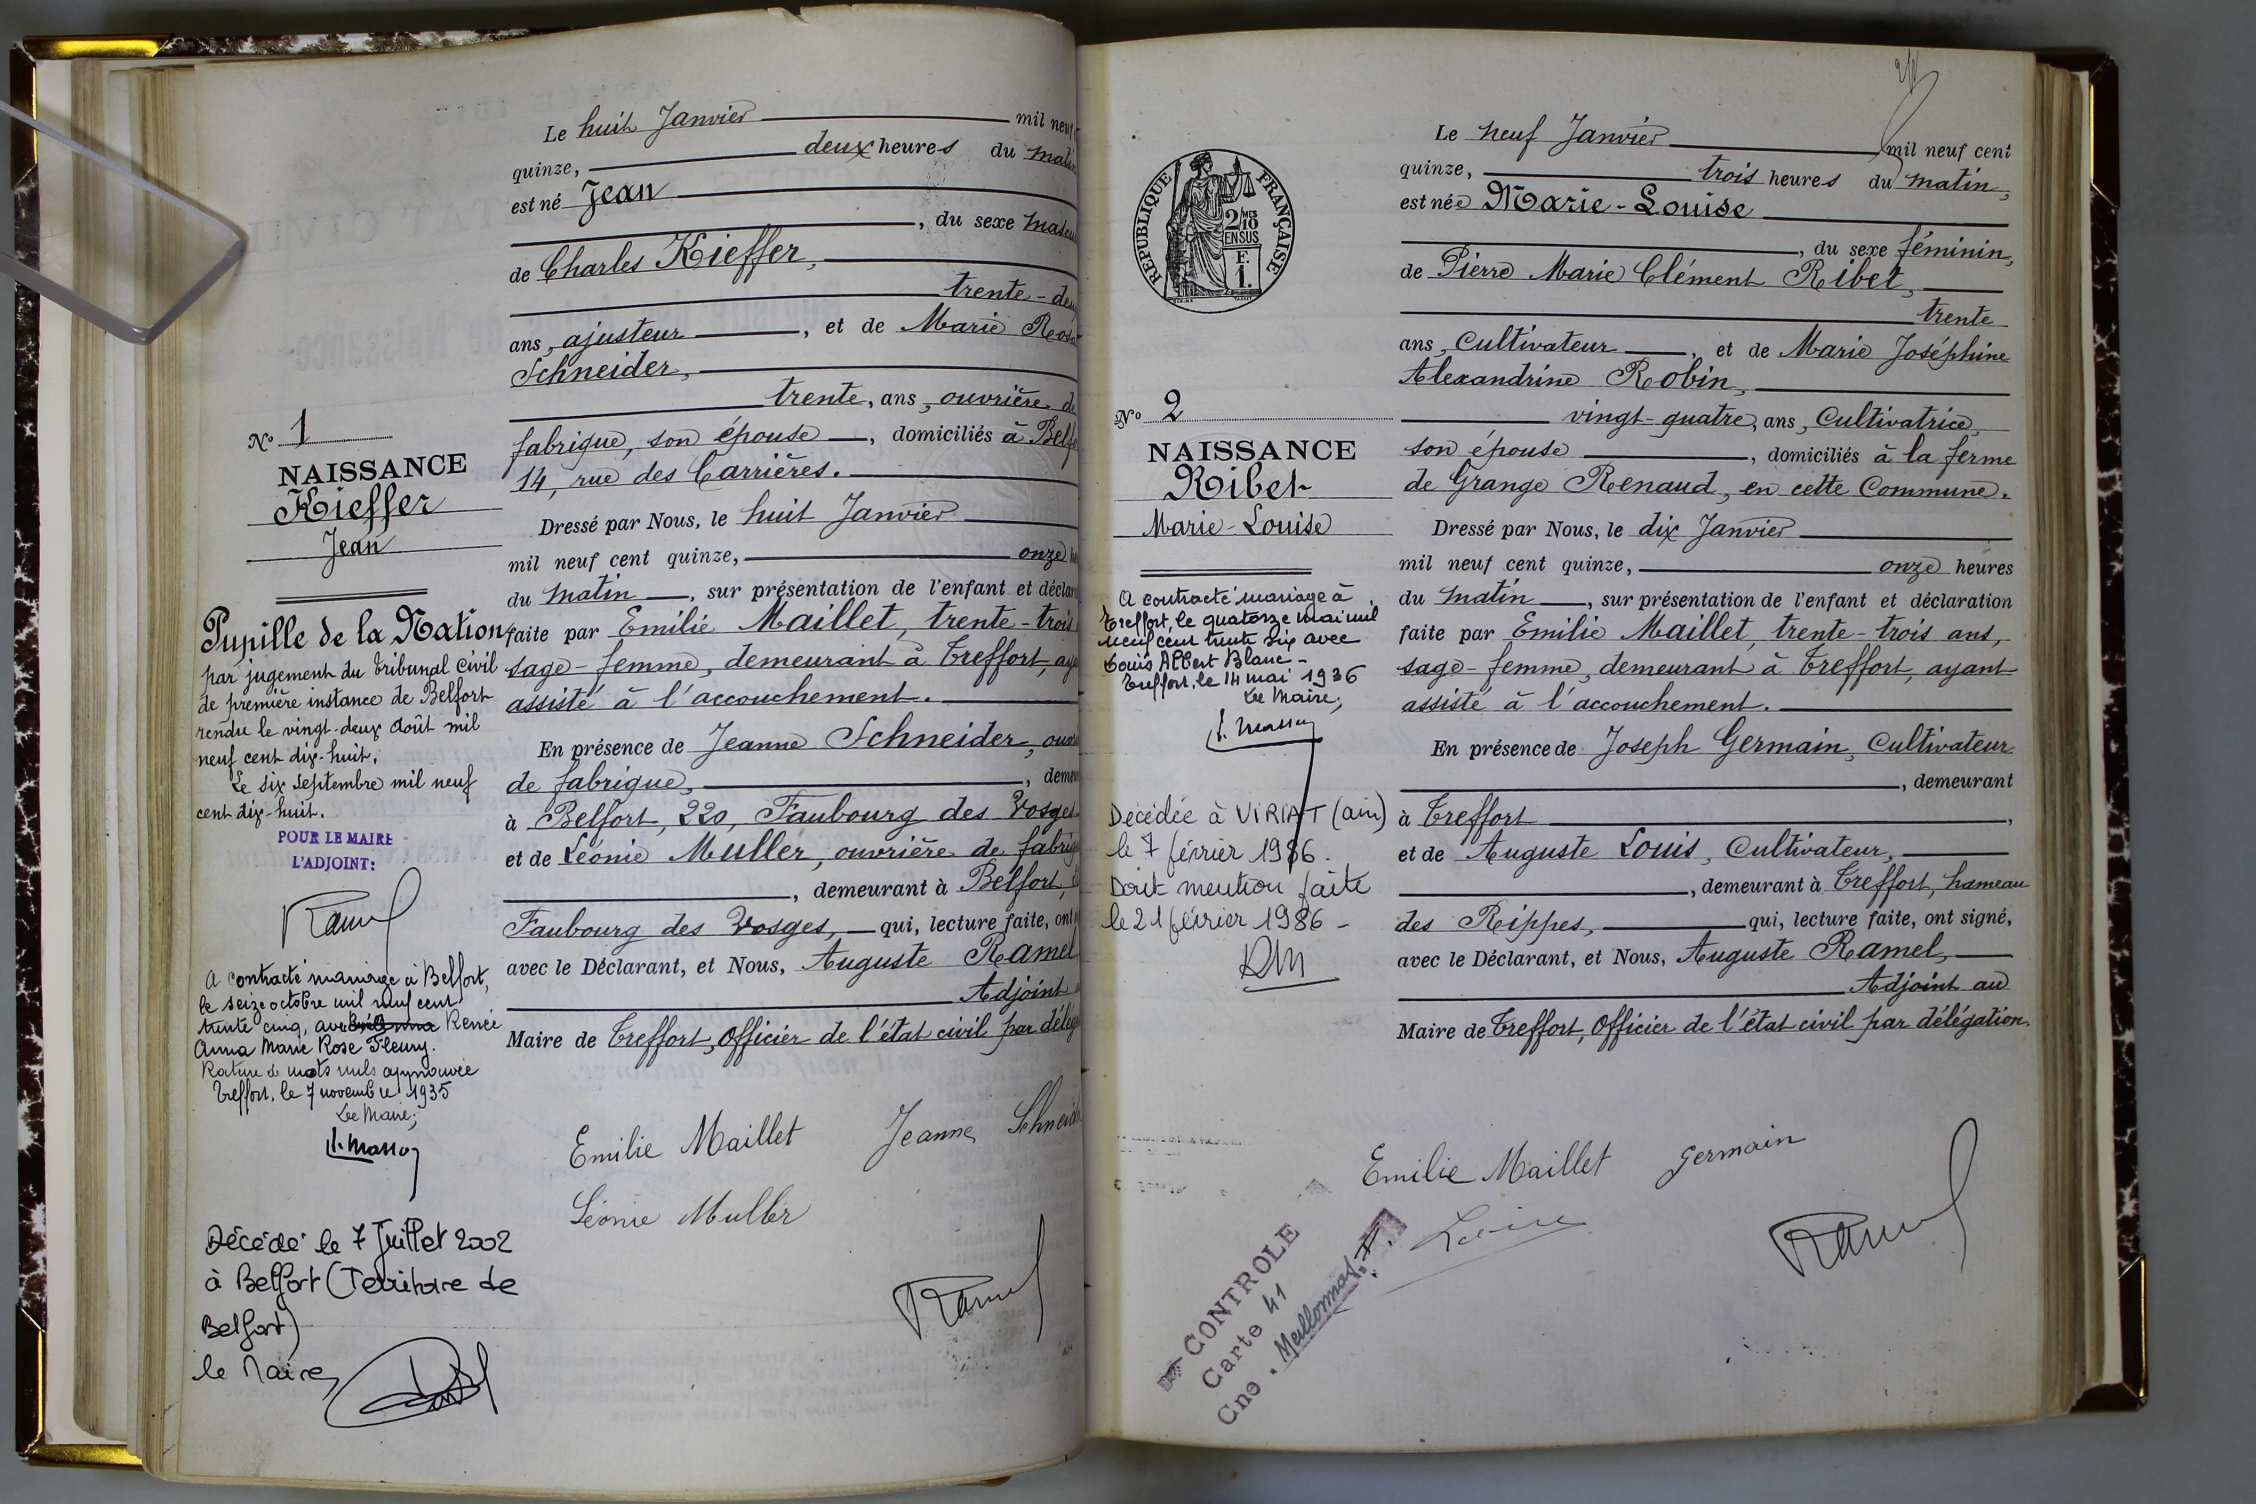 Le huit Janvier mil neuf
quinze, deux heures du matin
est né Jean
, du sexe mascu
de Charles Kieffer,
trente-deux
ans, ajusteur, et de Marie Rosa
Schneider,
trente, ans, ouvrière de
fabrique, son épouse, domiciliés à Belfo
14, rue des Carrières.
Dressé par Nous, le huit Janvier
mil neuf cent quinze, onze h
du matin, sur présentation de l'enfant et déclara
faite par Emilie Maillet, trente-trois
sage-femme, demeurant à Treffort, aya
assisté à l'accouchement.
En présence de Jeanne Schneider, ouvri
de fabrique, demeu
à Belfort, 220, Faubourg des Vosges
et de Léonie Muller, ouvrière de fabriqu
, demeurant à Belfort,
Faubourg des Vosges, qui, lecture faite, ont
avec le Déclarant, et Nous, Auguste Ramel
Adjoint
Maire de Treffort, Officier de l'état civil par délég
Emilie Maillet Jeanne Schneid
Léonie Muller
Ramel
No 1
NAISSANCE
Kieffer
Jean
Pupille de la Nation
par jugement du Tribunal Civil
de première instance de Belfort
rendu le vingt-deux Août mil
neuf cent dix-huit.
Le six Septembre mil neuf
cent dix-huit.
POUR LE MAIRE
L'ADJOINT:
Ramel
A contracté mariage à Belfort,
le seize octobre mil neuf cent
trente cinq, avec Renée
Anna Marie Rose Fleury.
Rature de mots nuls approuvée
Treffort, le 7 novembre 1935
Le Maire;
Décédé le 7 Juillet 2002
à Belfort (Territoire de
Belfort)
le Maire,
Le neuf Janvier mil neuf cent
quinze, trois heures du matin,
est née Marie-Louise
, du sexe féminin,
de Pierre Marie Clément Ribet,
trente
ans, Cultivateur, et de Marie Joséphine
Alexandrine Robin,
vingt-quatre, ans, Cultivatrice,
son épouse, domiciliés à la ferme
de Grange Renaud, en cette Commune.
Dressé par Nous, le dix Janvier
mil neuf cent quinze, onze heures
du matin, sur présentation de l'enfant et déclaration
faite par Emilie Maillet, trente-trois ans,
sage-femme, demeurant à Treffort, ayant
assisté à l'accouchement.
En présence de Joseph Germain, Cultivateur
, demeurant
à Treffort,
et de Auguste Louis, Cultivateur,
, demeurant à Treffort, hameau
des Rippes, qui, lecture faite, ont signé,
avec le Déclarant, et Nous, Auguste Ramel,
Adjoint au
Maire de Treffort, Officier de l'état civil par délégation.
Emilie Maillet Germain
Ramel
REPUBLIQUE FRANÇAISE
2/10 MES
EN SUS
F.
1.
No 2
NAISSANCE
Ribet
Marie-Louise
A contracté mariage à
Treffort, le quatorze mai mil
neuf cent trente six avec
Louis Albert Blanc-
Treffort, le 14 mai 1936
Le Maire;
Décédée à VIRIAT (ain)
le 7 février 1986.
Dont mention faite
le 21 février 1986 -
CONTROLE
Carte 41
Cne. Meillonnas